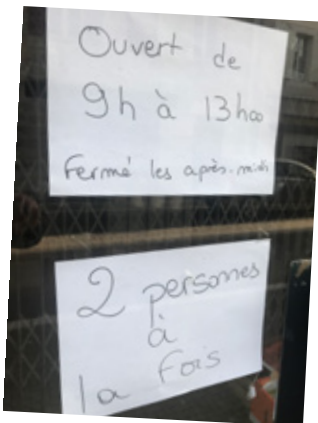 Ouvert de
9h à 13h00
Fermé les après-midis
2 personnes
à
la fois